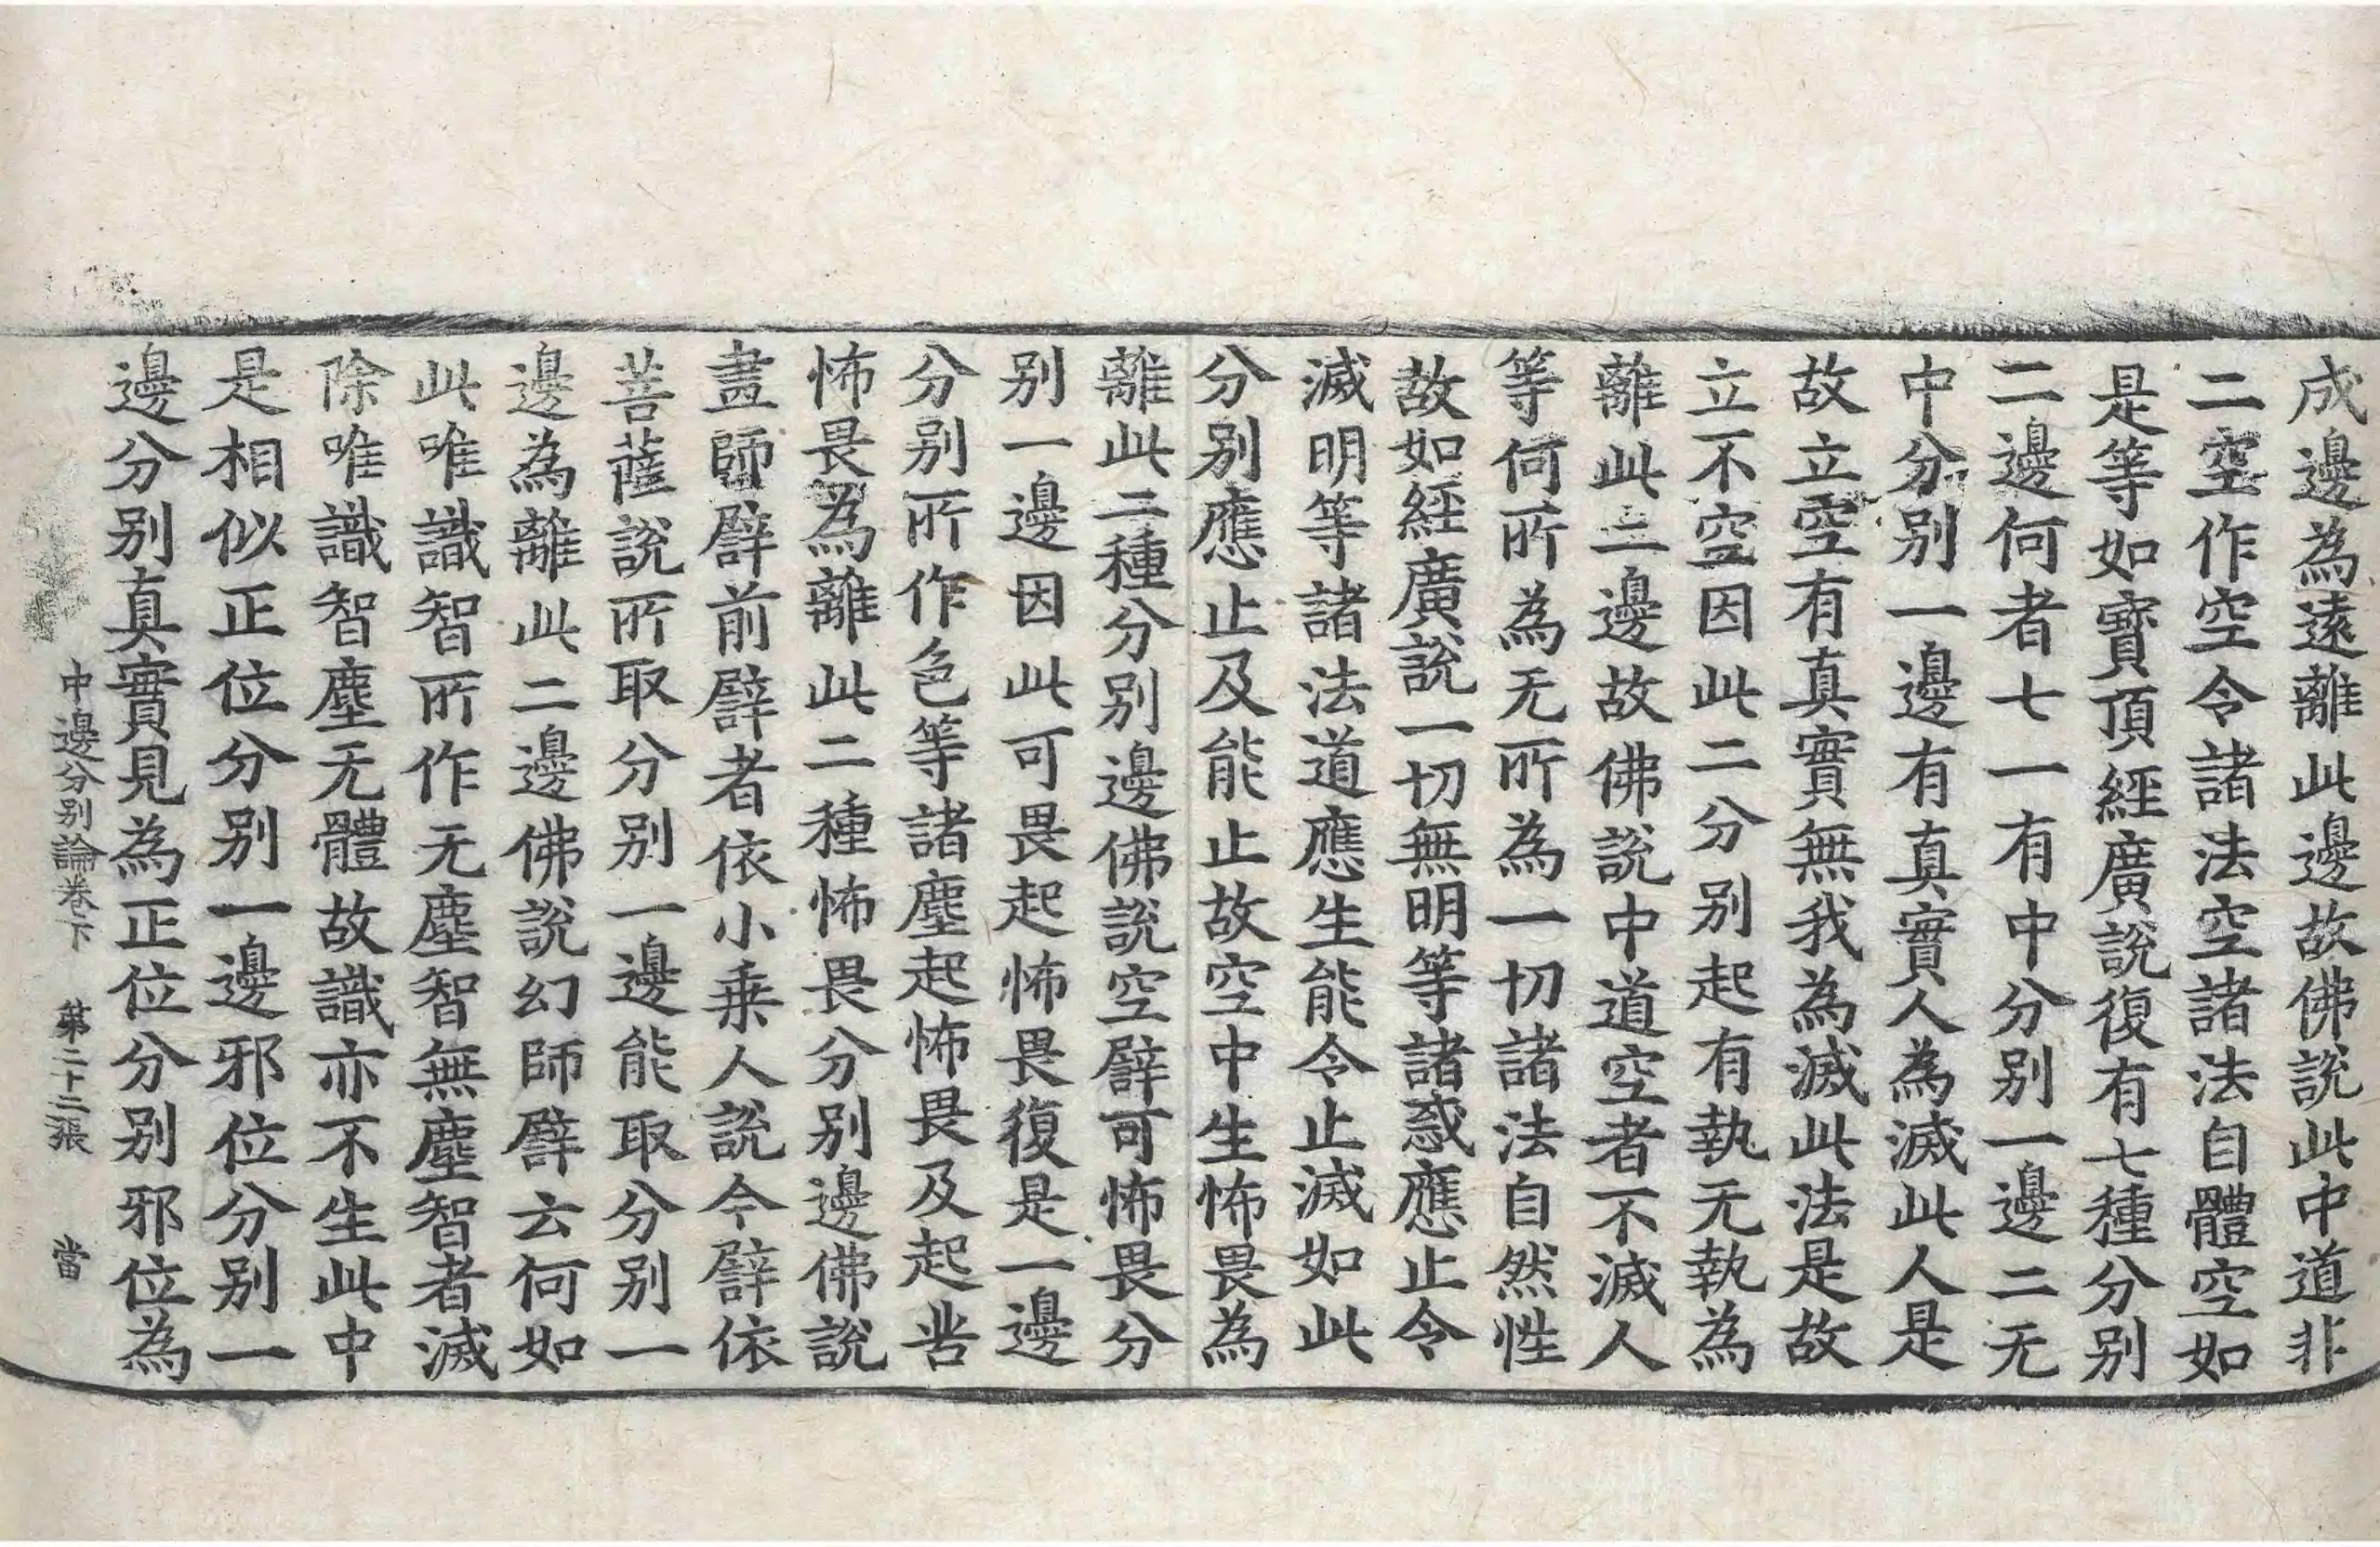 成邊為遠離此邊故佛說此中道非
二空作空令諸法空諸法自體空如
是等如寶頂經廣說復有七種分別
二邊何者七一有中分別一邊二无
中分別一邊有真實人為滅此人是
故立空有真實無我為滅此法是故
立不空因此二分別起有執无執為
離此二邊故佛說中道空者不滅人
等何所為无所為一切諸法自然性
故如經廣說一切無明等諸惑應止令
滅明等諸法道應生能令止滅如此
分別應止及能止故空中生怖畏為
離此二種分別邊佛說空譬可怖畏分
別一邊因此可畏起怖畏復是一邊
分別所作色等諸塵起怖畏及起苦
怖畏為離此二種怖畏分別邊佛說
畫師譬前譬者依小乗人說今譬依
菩薩說所取分別一邊能取分別一
邊為離此二邊佛說幻師譬云何如
此唯識智所作无塵智無塵智者滅
除唯識智塵无體故識亦不生此中
是相似正位分別一邊邪位分別一
邊分別真實見為正位分別邪位為
中邊分別論卷下 第二十二張 當